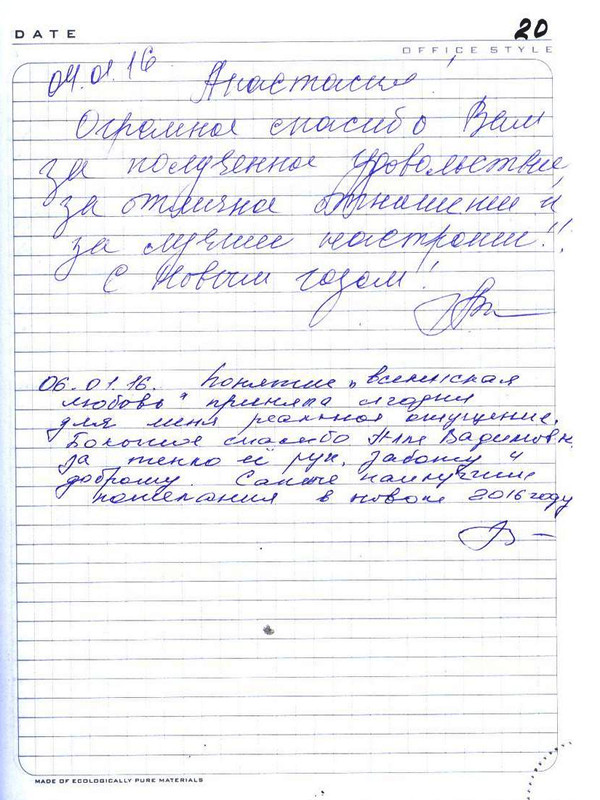 DATE
20
OFFICE STYLE
04.01.16
Анастасия!
Огромное спасибо Вам
за полученное удовольствие,
за отличное отношение и
за лучшее настроение!!
С Новым годом!!
06.01.16. Понятие „вселенская
любовь" приняла сегодня
для меня реальное ощущение.
Большое спасибо Вадимовн.
за тепло её рук, заботу и
доброту. Самые наилучшие
пожелания в новом 2016 году
MADE OF ECOLOGICALLY PURE MATERIALS